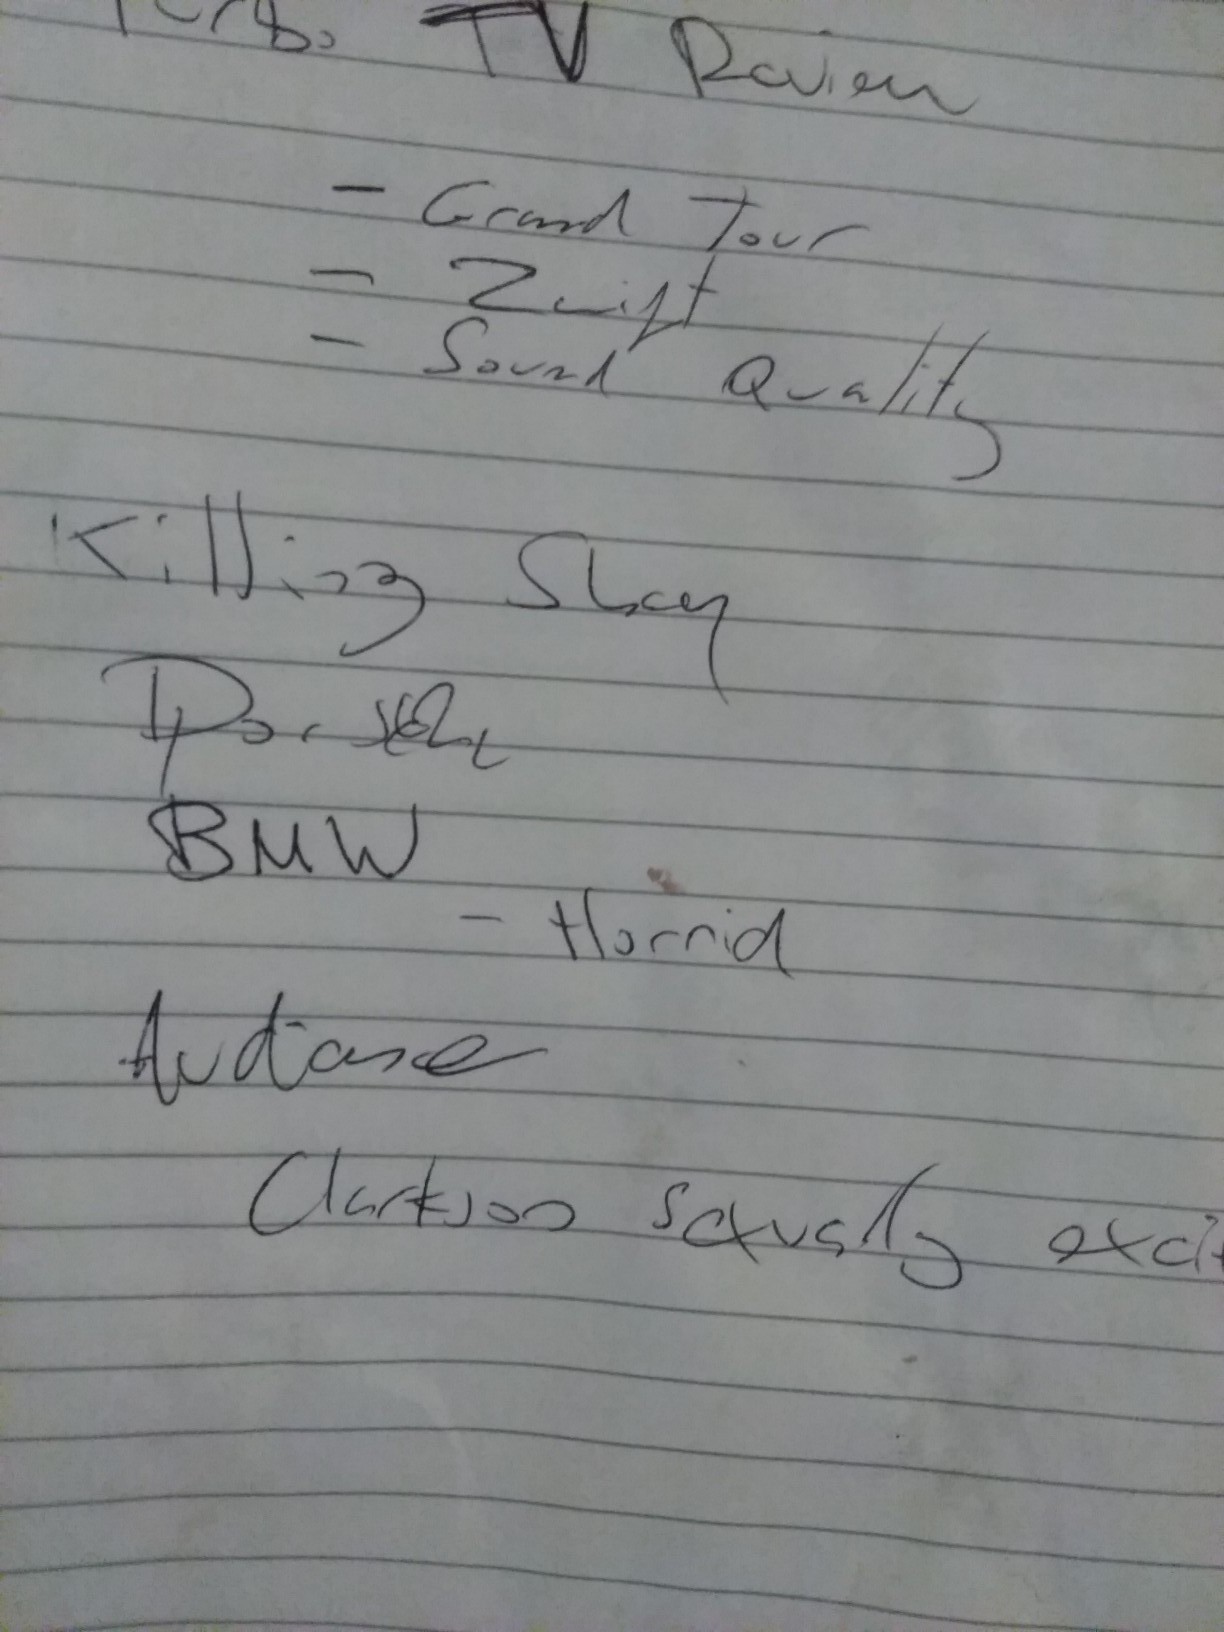 TV Review
- Grand Tour
- Zwift
- Sound Quality
Killing Shay
Porsche
BMW
- Horrid
Clarkson sexually excit